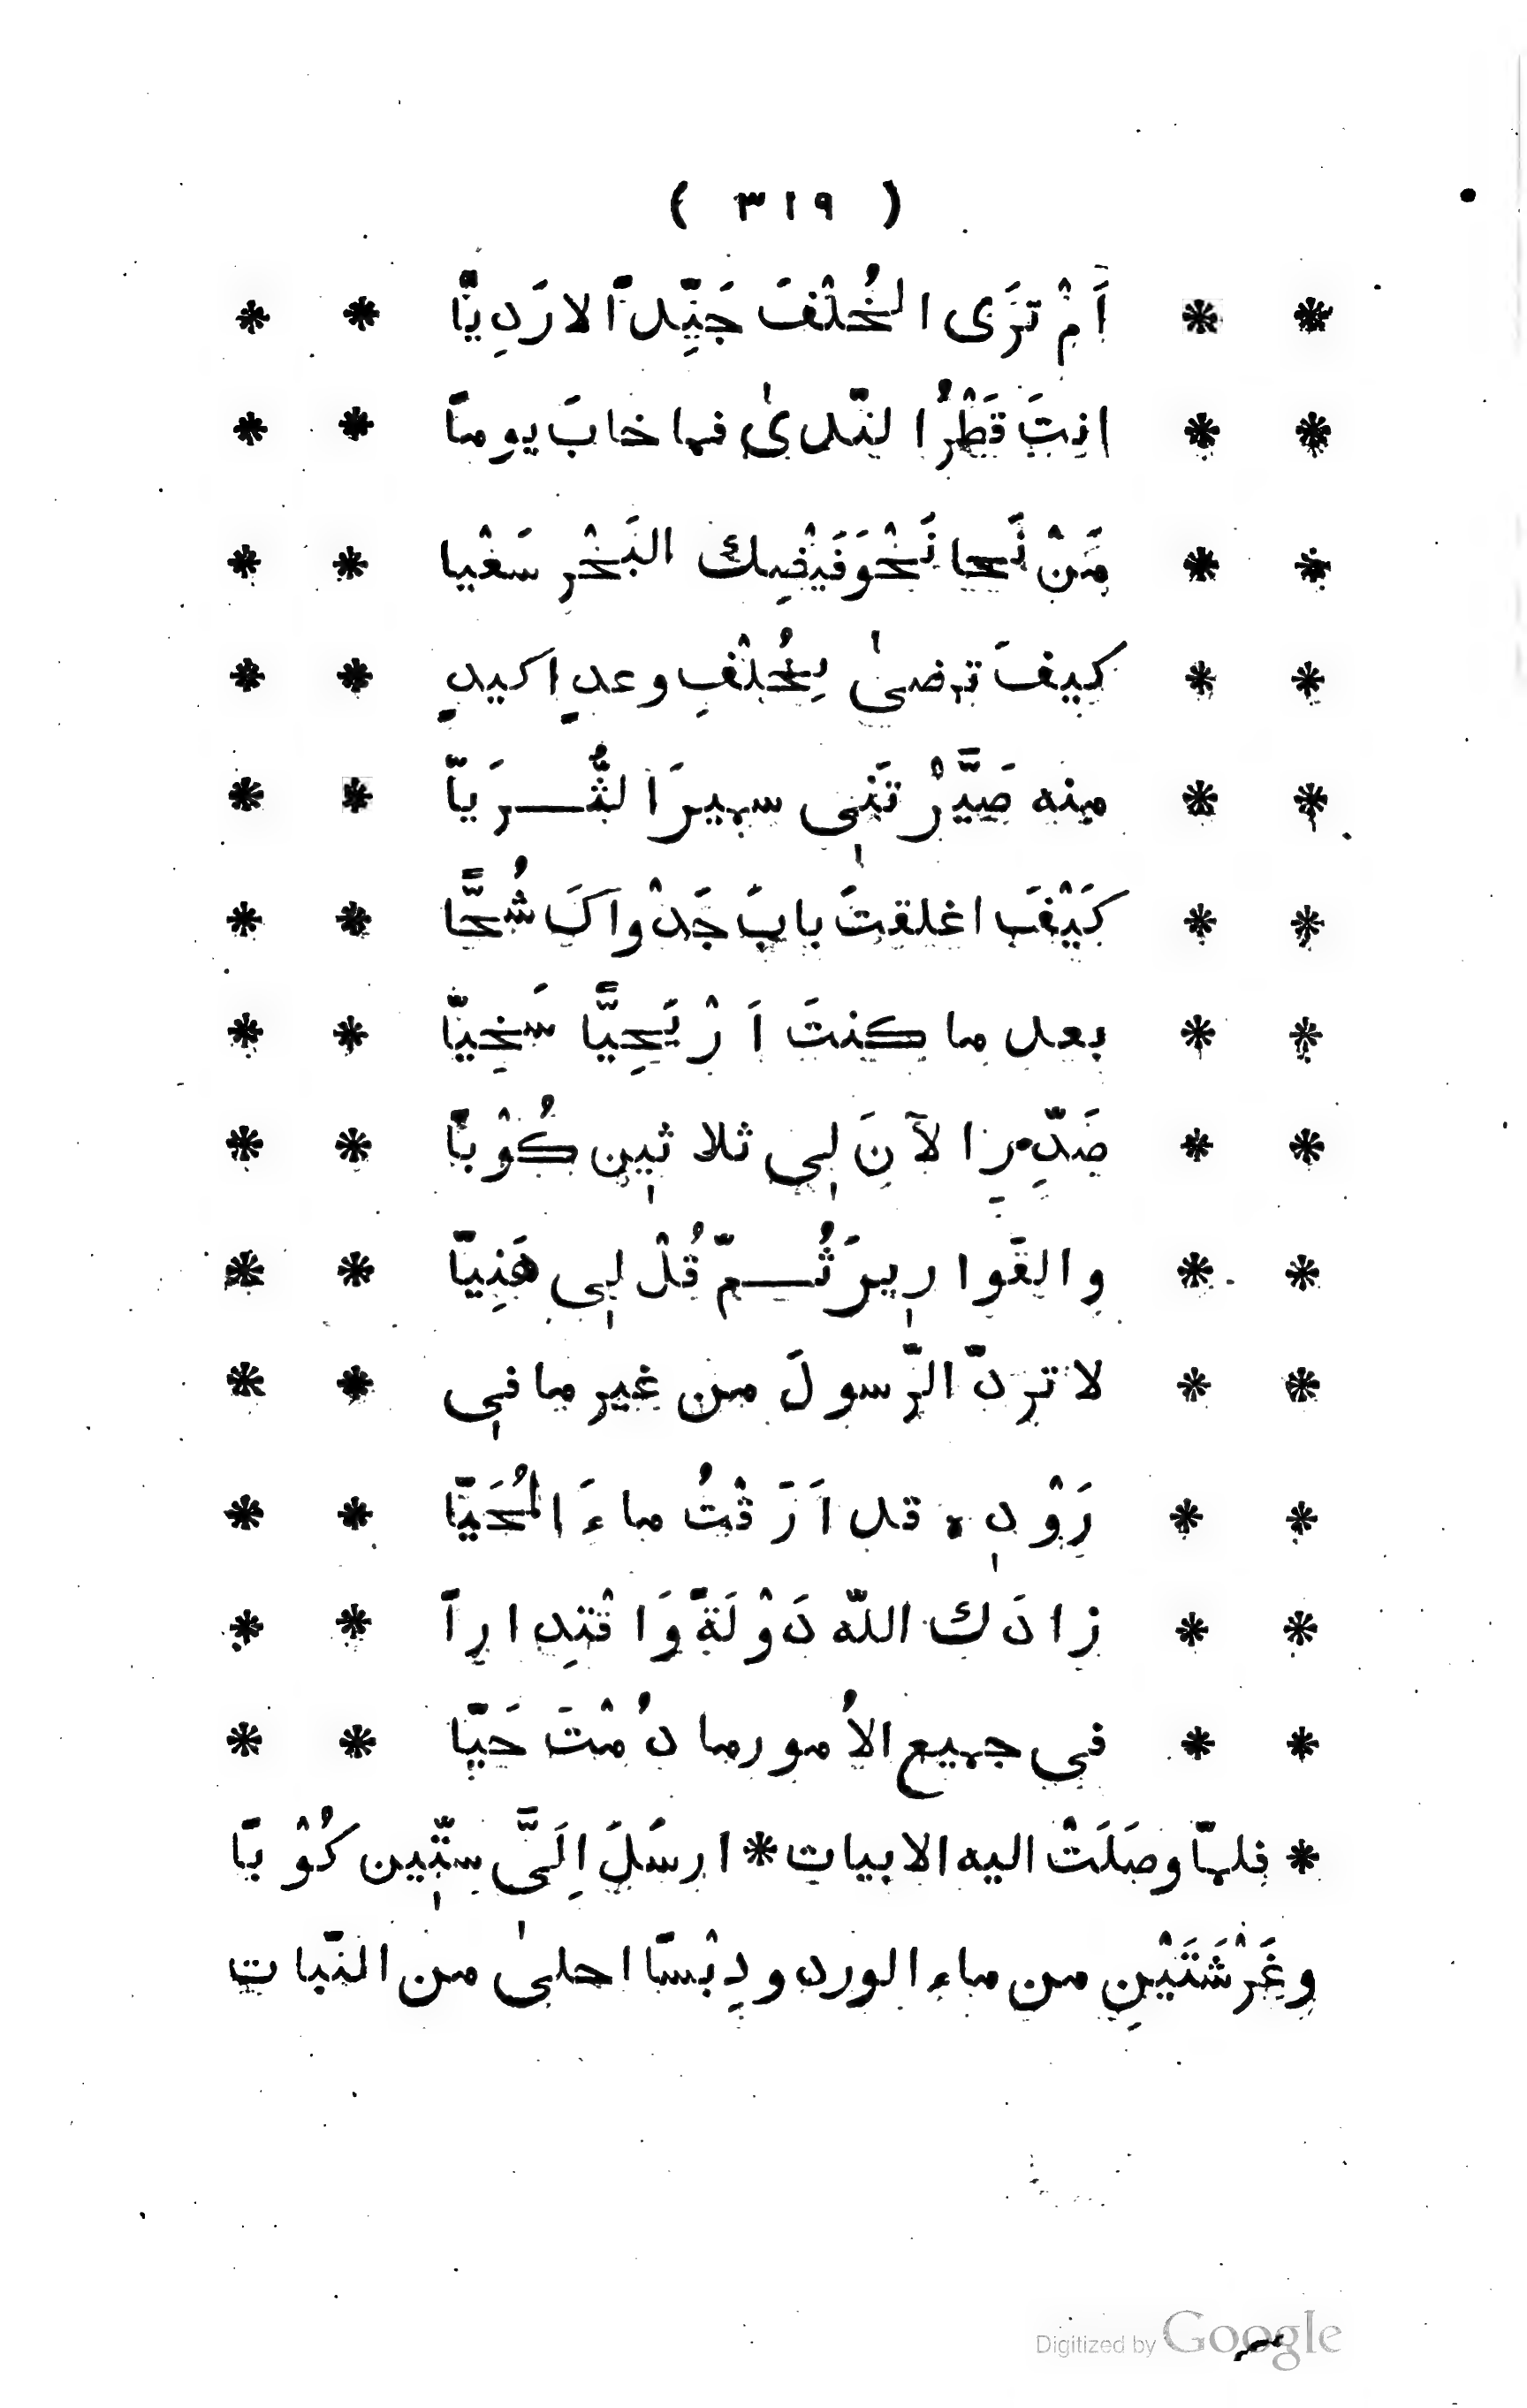 ( ٣١٩ )
* * اَمْ تَرَى الخُلْفَ جَيِّداً لا رَدِيّاً * *
* * انتَ قَطْرُ النّدىٰ فما خابَ يوماً * *
* * مَنْ نَحا نَحْوَفَيْضِكَ البَحْرِ سَعْيا * *
* * كيفَ ترضىٰ بِخُلْفِ وعدٍ اكيدٍ * *
* * منه صَيَّرْتَنِى سميرَ الثُّريَّا * *
* * كَيْفَ اغلقتَ بابَ جَدْواكَ شُحًّا * *
* * بعد ما كنتَ اَرْيَحِيًّا سَخِيّا * *
* * ضَدِّرِ الآنَ لِى ثلاثين كُوْباً * *
* * والقَوارِيرَ ثُمّ قُلْ لِى هَنِيّا * *
* * لا تردّ الرّسولَ من غير مافى * *
* * رَوْدِه قد اَرَقْتُ ماءَ المُحَيّا * *
* * زادَك اللّه دَوْلَةً وَاقْتِداراً * *
* * فى جميع الاُمور ما دُمْتَ حَيّا * *
* فلمّا وصَلَتْ اليه الابيات * ارسَلَ اِلَىَّ ستّين كُوْباً
وغَرْشَتَيْنِ من ماء الورد و دِبْساً احلىٰ من النّبات
Digitized by Google